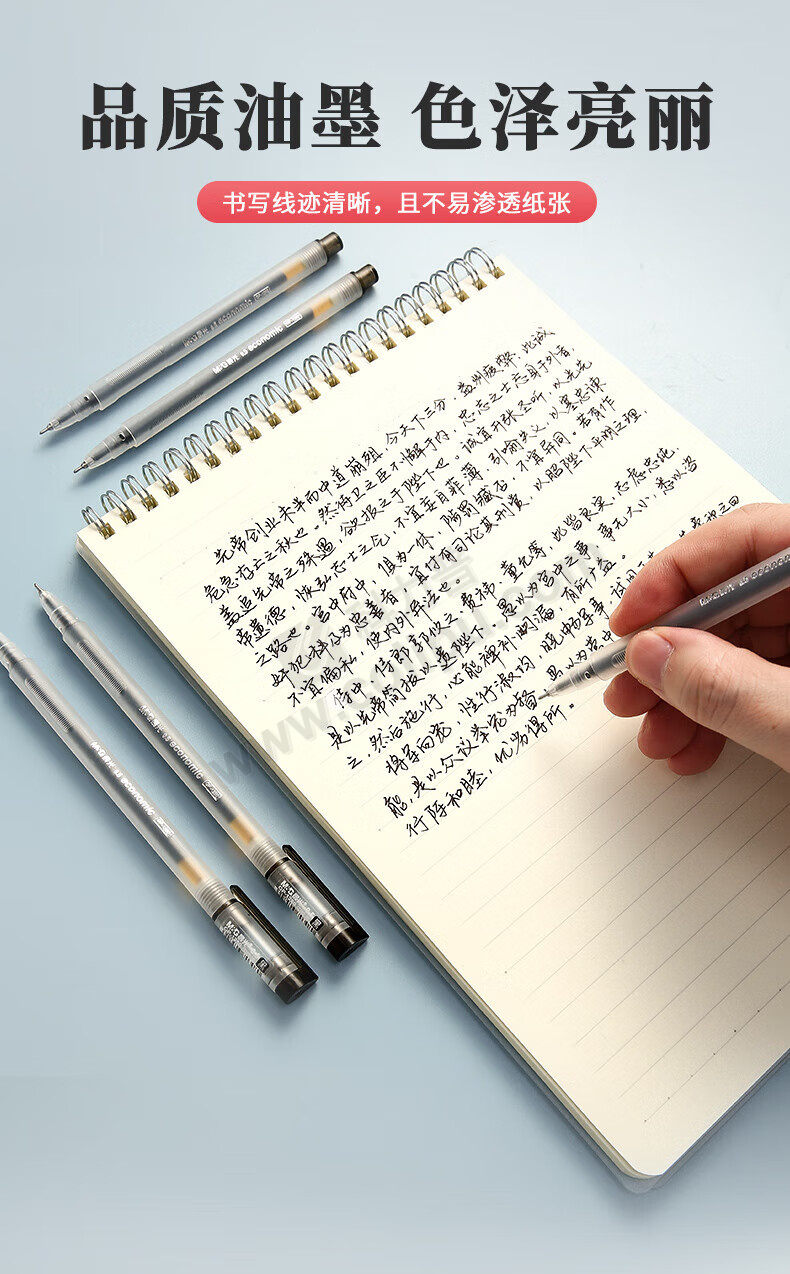 品质油墨 色泽亮丽
书写线迹清晰，且不易渗透纸张
M&G 晨光 0.5 economic
M&G 晨光 0.5 economic
先帝创业未半而中道崩殂，今天下三分，益州疲弊，此诚
危急存亡之秋也。然侍卫之臣不懈于内，忠志之士忘身于外者，
盖追先帝之殊遇，欲报之于陛下也。诚宜开张圣听，以光先
帝遗德，恢弘志士之气，不宜妄自菲薄，引喻失义，以塞忠谏
之路也。宫中府中，俱为一体，陟罚臧否，不宜异同。若有作
奸犯科及为忠善者，宜付有司论其刑赏，以昭陛下平明之理，
不宜偏私，使内外异法也。
侍中、侍郎郭攸之、费祎、董允等，此皆良实，志虑忠纯，
是以先帝简拔以遗陛下。愚以为宫中之事，事无大小，悉以咨
之，然后施行，必能裨补阙漏，有所广益。
将军向宠，性行淑均，晓畅军事，试用
能，是以众议举宠为督
愚以为营中
行阵和睦，优劣得所。
M&G 晨光 0.5 economic
M&G 晨光 0.5 economic
M&G 晨光
黑
M&G 晨光
黑